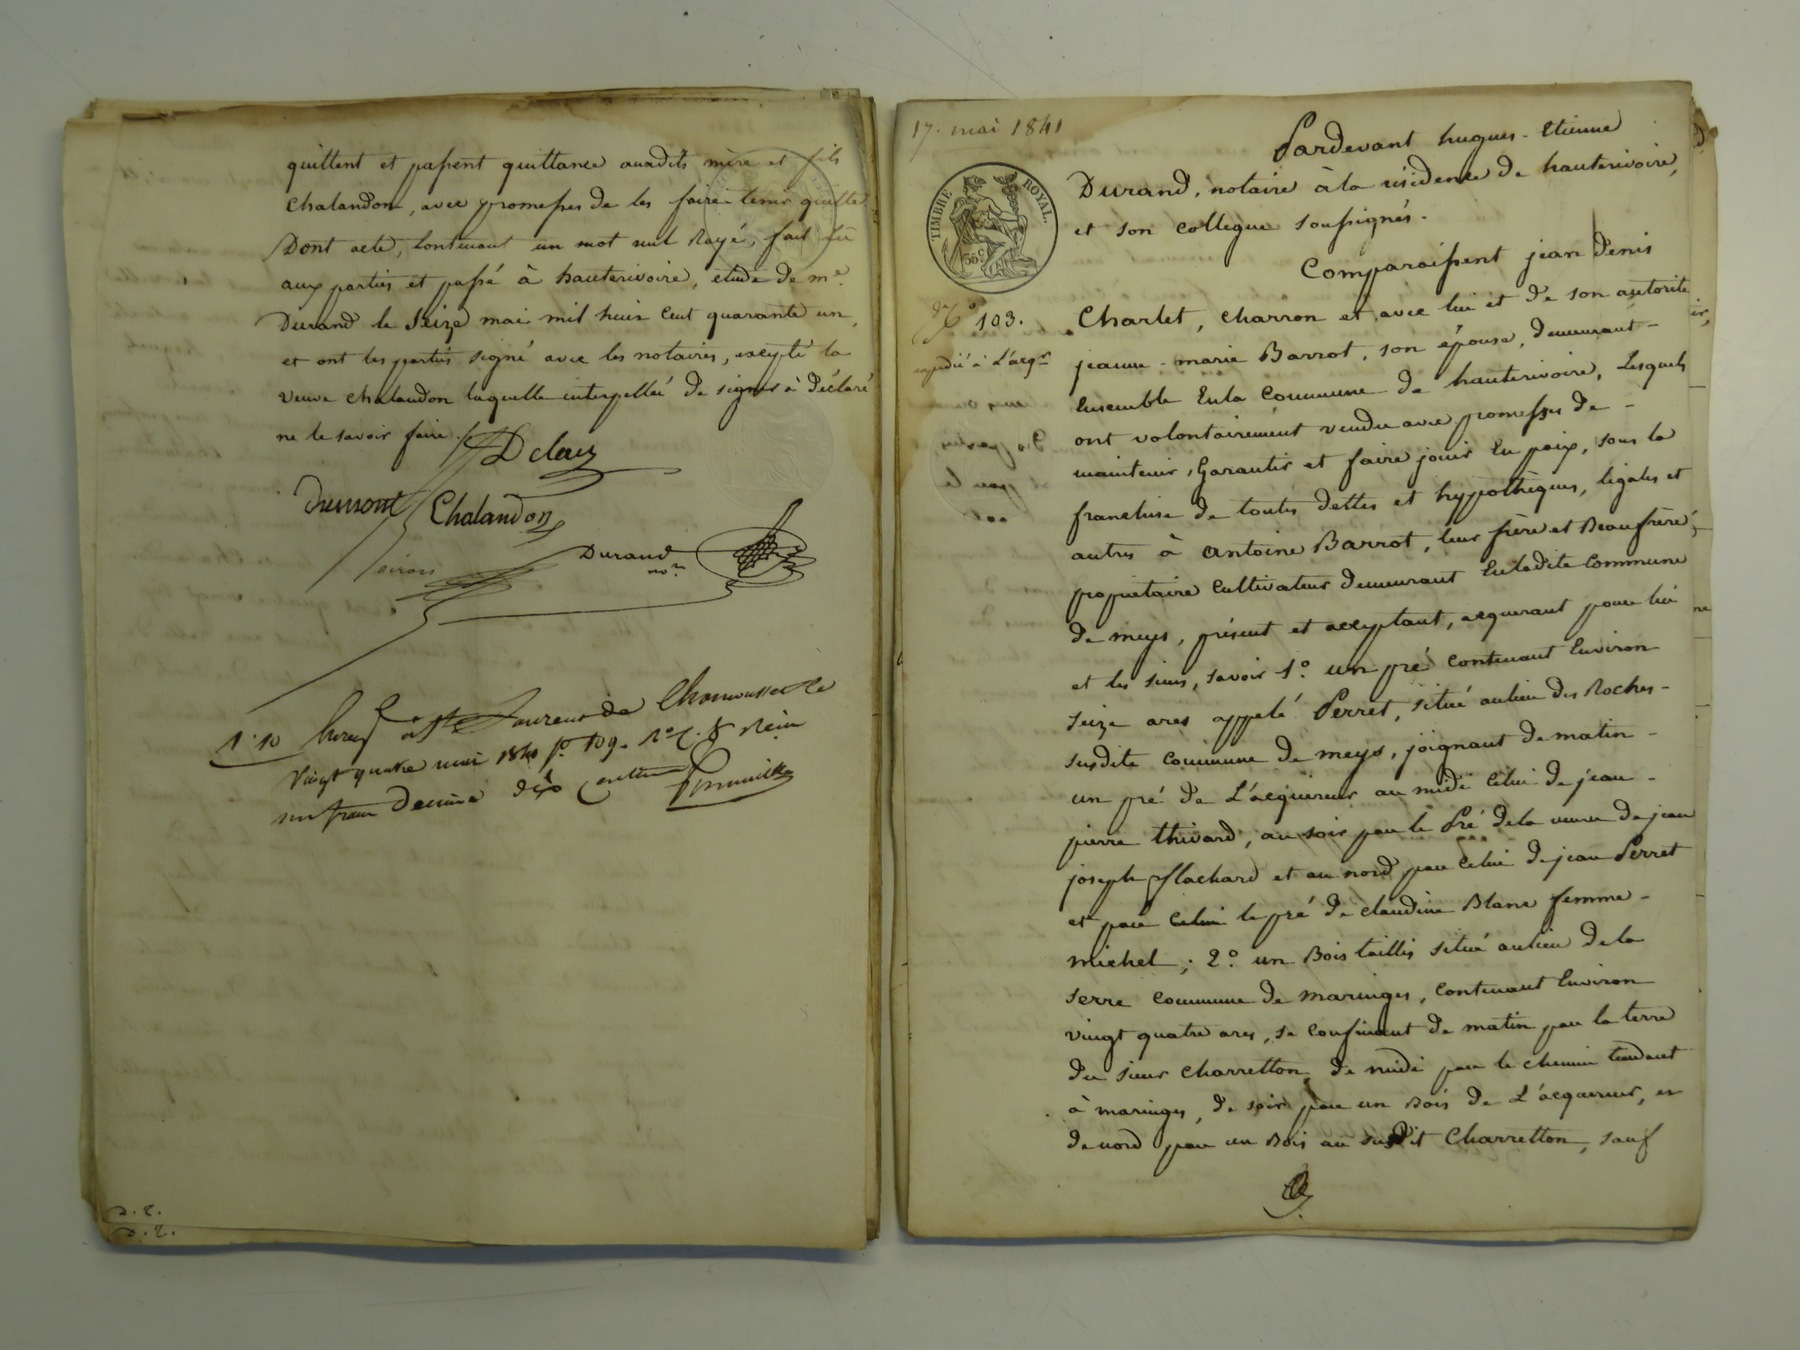 quittent et passent quittance auxdits mère et fils
chalandon, avec promesses de les faire tenir quitte
Dont acte, Contenant un mot nul Rayé, fait lu
aux parties et passé à hauterivoire, étude de me.
Durand le Seize mai mil huit Cent quarante un,
et ont les parties signé avec les notaires, excepté la
veuve chalandon laquelle interpellée de signer à déclaré
ne le savoir faire.
Chalandon
Durand
nore
1.10
à St Laurent de Chamousset le
Vingt quatre mai 1841 fo. 109. Ro C. 8 Reçu
un franc Décime dix Centimes
D. 2.
D. 2.
17. mai 1841
TIMBRE ROYAL.
35c
No 103.
expédié à L'acqr
Pardevant hugues-Etienne
Durand, notaire à la résidence de hauterivoire,
et son collegue soussignés.
Comparaissent jean denis
Charlet, charron et avec lui et de son autorité
jeanne-marie Barrot, son épouse, demeurant-
Ensemble En la Commune de hauterivoire, Lesquels
ont volontairement vendu avec promesses de -
maintenir, Garantir et faire jouir En paix, sous la
franchise de toutes dettes et hypothèques, légales et
autres à antoine Barrot, leur frère et Beaufrère,
propriétaire Cultivateur demeurant En ladite Commune
de meys, présent et acceptant, acquerant pour lui
et les siens, savoir 1o. un pré contenant Environ
seize ares appelé Perret, situé au lieu des Roches-
susdite commune de meys, joignant de matin-
un pré de L'acquereur au midi Celui de jean-
pierre thivard, au soir par le Pré de la veuve de jean
joseph flachard et au nord par Celui de jean Perret
et par Celui le pré de claudine Blanc femme-
michel; 2o. un Bois taillis situé au lieu de la
serre commune de maringes, contenant Environ
vingt quatre ares, se confinant de matin par la terre
du sieur Charretton, de midi par le chemin tendant
à maringes, de soir par un Bois de L'acquereur, et
de nord par un Bois au susdit Charretton, sauf